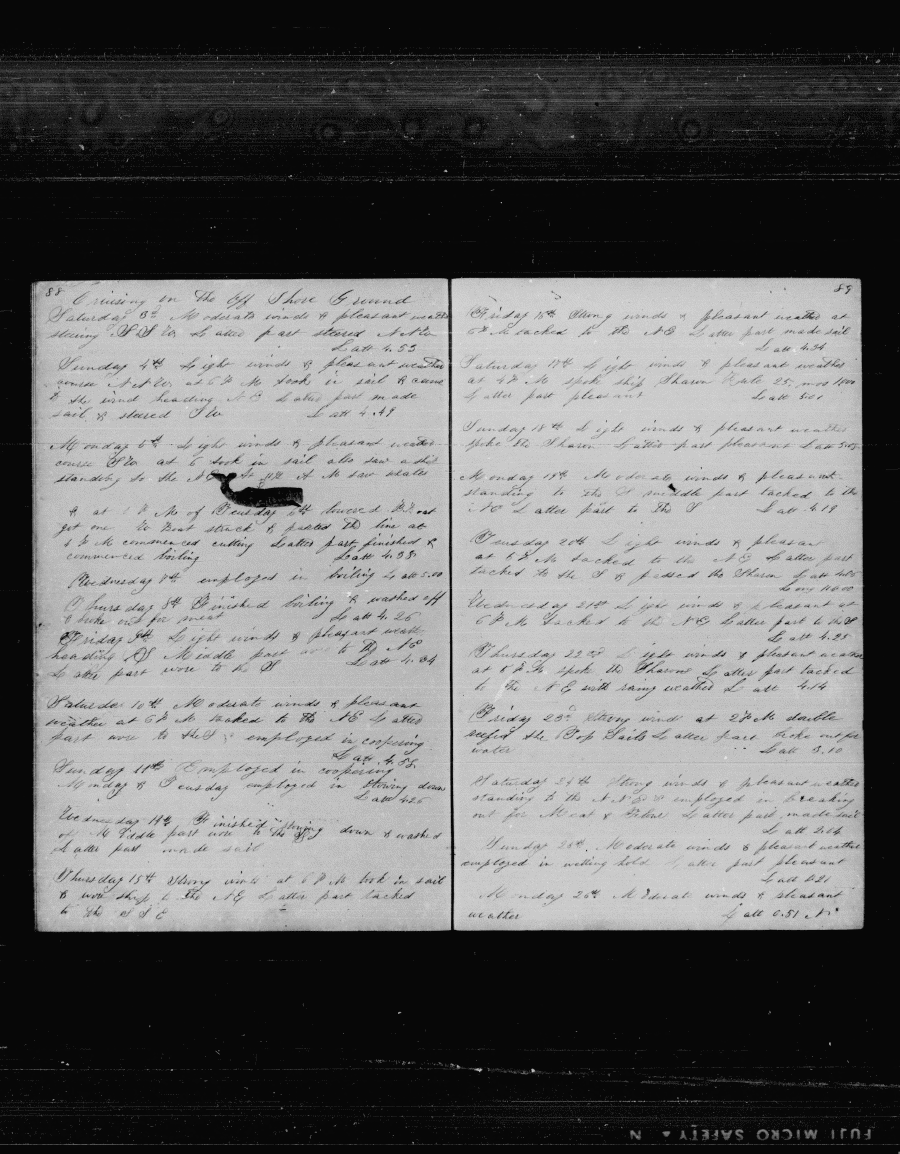 88
Cruising on the Off Shore Ground
Saturday 3d Moderate winds & pleasant weather
steering S S W Latter part steered N N W
Latt 4.53
Sunday 4th Light winds & pleasant weather
course N N W at 6 P M took in sail & came
to the wind heading N E Latter part made
sail & steered S W Latt 4.49
Monday 5th Light winds & pleasant weather
course S W at 6 took in sail also saw a ship
standing to the N E At A M saw whales
& at 1 P M of Tuesday 6th lowered
got one W Boat struck & parted the line at
4 P M commenced cutting Latter part finished &
commenced boiling Latt 4.38
Wednesday 7th employed in boiling Latt 5.00
Thursday 8th Finished boiling & washed off
& broke out for meat Latt 4.26
Friday 9th Light winds & pleasant weath
heading S Middle part wore to the N E
Latter part wore to the S Latt 4.34
Saturday 10th Moderate winds & pleasant
weather at 6 P M tacked to the N E Latter
part wore to the S employed in coopering
Latt 4.58
Sunday 11th Employed in coopering
Monday & Tuesday employed in stowing down
Latt 4.26
Wednesday 14th Finished stowing down & washed
off Middle part wore to the
Latter part made sail
Thursday 15th Strong winds at 6 P M took in sail
& wore ship to the N E Latter part tacked
to the S S E
89
Friday 16th Strong winds & pleasant weather at
6 P M tacked to the N E Latter part made sail
Latt 4.34
Saturday 17th Light winds & pleasant weather
at 4 P M spoke ship Sharon 25 mos 1800
Latter part pleasant Latt 5.01
Sunday 18th Light winds & pleasant weather
spoke the Sharon Latter part pleasant Latt
Monday 19th Moderate winds & pleasant
standing to the S middle part tacked to the
N E Latter part to the S Latt 4.19
Tuesday 20th Light winds & pleasan
at 6 P M tacked to the N E Latter part
tacked to the S & passed the Sharon Latt
Long 116.00
Wednesday 21st Light winds & pleasant at
6 P M tacked to the N E Latter part to the S
Latt 4.25
Thursday 22d Light winds & pleasant weather
at 5 P M spoke the Sharon Latter part tacked
to the N E with rainy weather Latt 4.14
Friday 23d Strong wind at 2 P M double
reefed the Top Sails Latter part broke out for
water Latt 3.10
Saturday 24th Strong winds & pleasant weather
standing to the N N E employed in breaking
out for Meat & Latter part made sail
Latt 2.04
Sunday 25th Moderate winds & pleasant weather
employed in wetting hold Latter part pleasant
Latt 0.21
Monday 26th Moderate winds & pleasant
weather Latt 0.51 N
FUJI MICRO SAFETY ▲ N